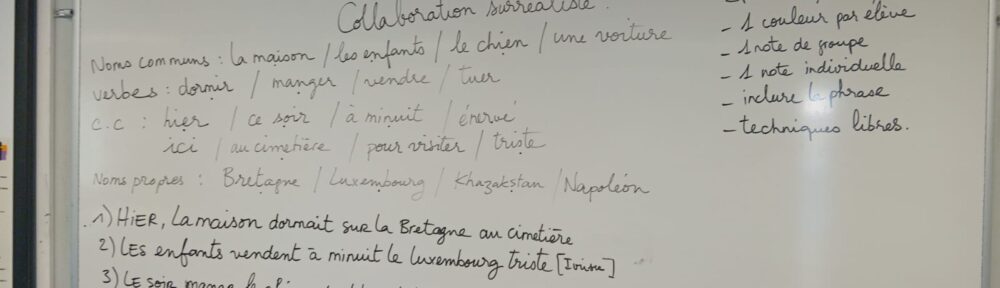 Collaboration surréaliste.
Noms communs : la maison / les enfants / le chien / une voiture
verbes : dormir / manger / vendre / tuer
c.c : hier / ce soir / à minuit / énervé
ici / au cimetière / pour visiter / triste
Noms propres : Bretagne / Luxembourg / Khazakstan / Napoléon
1) HIER, La maison dormait sur la Bretagne au cimetière
2) LES enfants vendent à minuit le Luxembourg triste
3) LE soir mange le
- 1 couleur par élève
- 1 note de groupe
- 1 note individuelle
- inclure la phrase
- techniques libres.